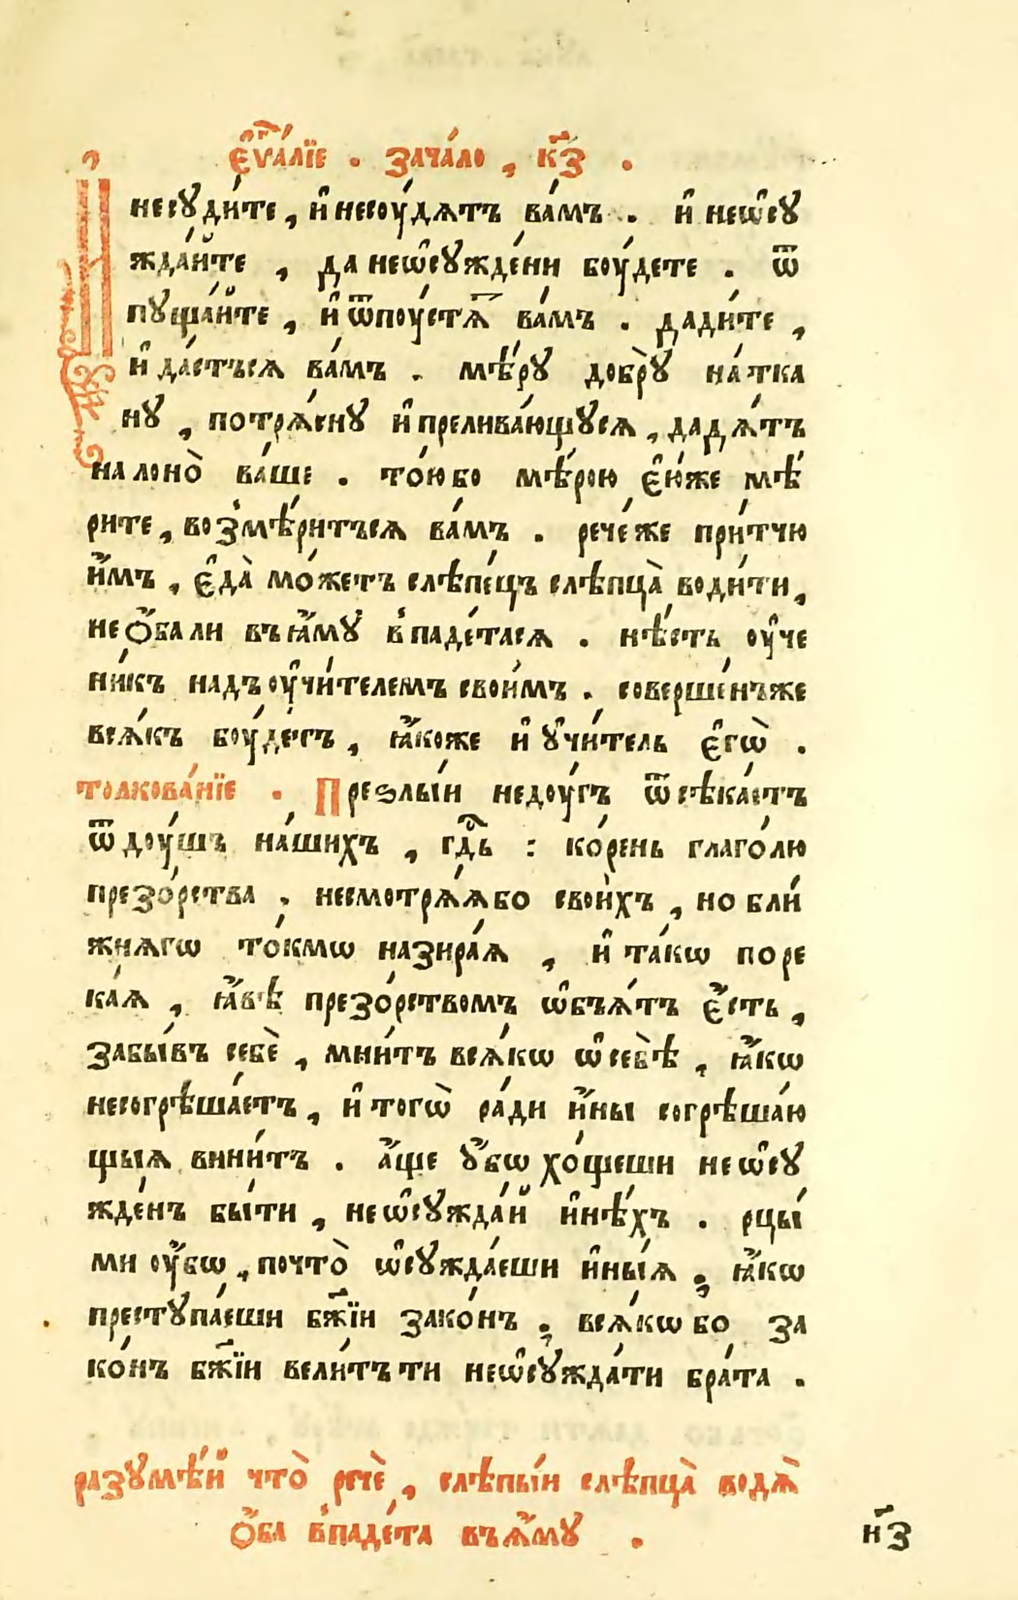 Є҆ѵⷢ҇а́лїе . зача́ло , к҃з .
И несꙋди́те , и҆ несоу́дѧтъ ва́мъ . и҆ неѡ҆сꙋ
жда́йте , да неѡ҆сꙋжде́ни боу́дете . ѿ
пꙋща́йте , и҆ ѿпоу́стѧⷮ ва́мъ . дади́те ,
и҆ да́стъсѧ ва́мъ . мѣ́рꙋ добрꙋ̀ на́тка
нꙋ , потрѧ́снꙋ и҆ прелива́ющꙋсѧ , дадѧ́тъ
на лоно̀ ва́ше . то́юбо мѣ́рою є҆ю́же мѣ́
рите , возмѣ́ритъсѧ ва́мъ . рече́же при́тчю
и҆̀мъ , є҆да̀ мо́жетъ слѣпе́цъ слѣпца̀ води́ти ,
не ѻ҆́ба ли въ ꙗ҆́мꙋ впаде́тасѧ . нѣ́сть оу҆че
ни́къ надъ оу҆чи́телемъ свои́мъ . соверше́нъже
всѧ́къ боу́детъ , ꙗ҆́коже и҆ ᲂу҆чи́тель є҆гѡ̀ .
толкова́нїе . Преѕлы́и недоу́гъ ѿсѣка́етъ
ѿ доу́шъ на́шихъ , гдⷭ҇ь : ко́рень глаго́лю
презо́рства . несмотрѧ́ѧбо свои́хъ , но бли́
жнѧгѡ то́кмѡ назира́ѧ , и҆ та́кѡ поре
ка́ѧ , ꙗ҆́вѣ презо́рствомъ ѡ҆бъѧ́тъ є҆́сть ,
забы́въ себѐ , мни́тъ всѧ́кѡ ѡ҆ себѣ̀ , ꙗ҆́кѡ
несогрѣша́етъ , и҆ тогѡ̀ ра́ди и҆́ны согрѣша́ю
щыѧ вини́тъ . а҆́ще ᲂу҆́бѡ хо́щеши не ѡ҆сꙋ
жде́нъ бы́ти , не ѡ҆сꙋжда́й и҆нѣ́хъ . рцы́
ми оу҆́бѡ , почто̀ ѡ҆сꙋжда́еши и҆ны́ѧ , ꙗ҆́кѡ
престꙋпа́еши бж҃їи зако́нъ ; всѧ́кѡ бо за
ко́нъ бж҃їи вели́тъ ти неѡ҆сꙋжда́ти бра́та .
разꙋмѣ́й что̀ речѐ , слѣпы́и слѣпца̀ водѧ̀
ѻ҆́ба впаде́та въ ꙗ҆́мꙋ .
н҃з